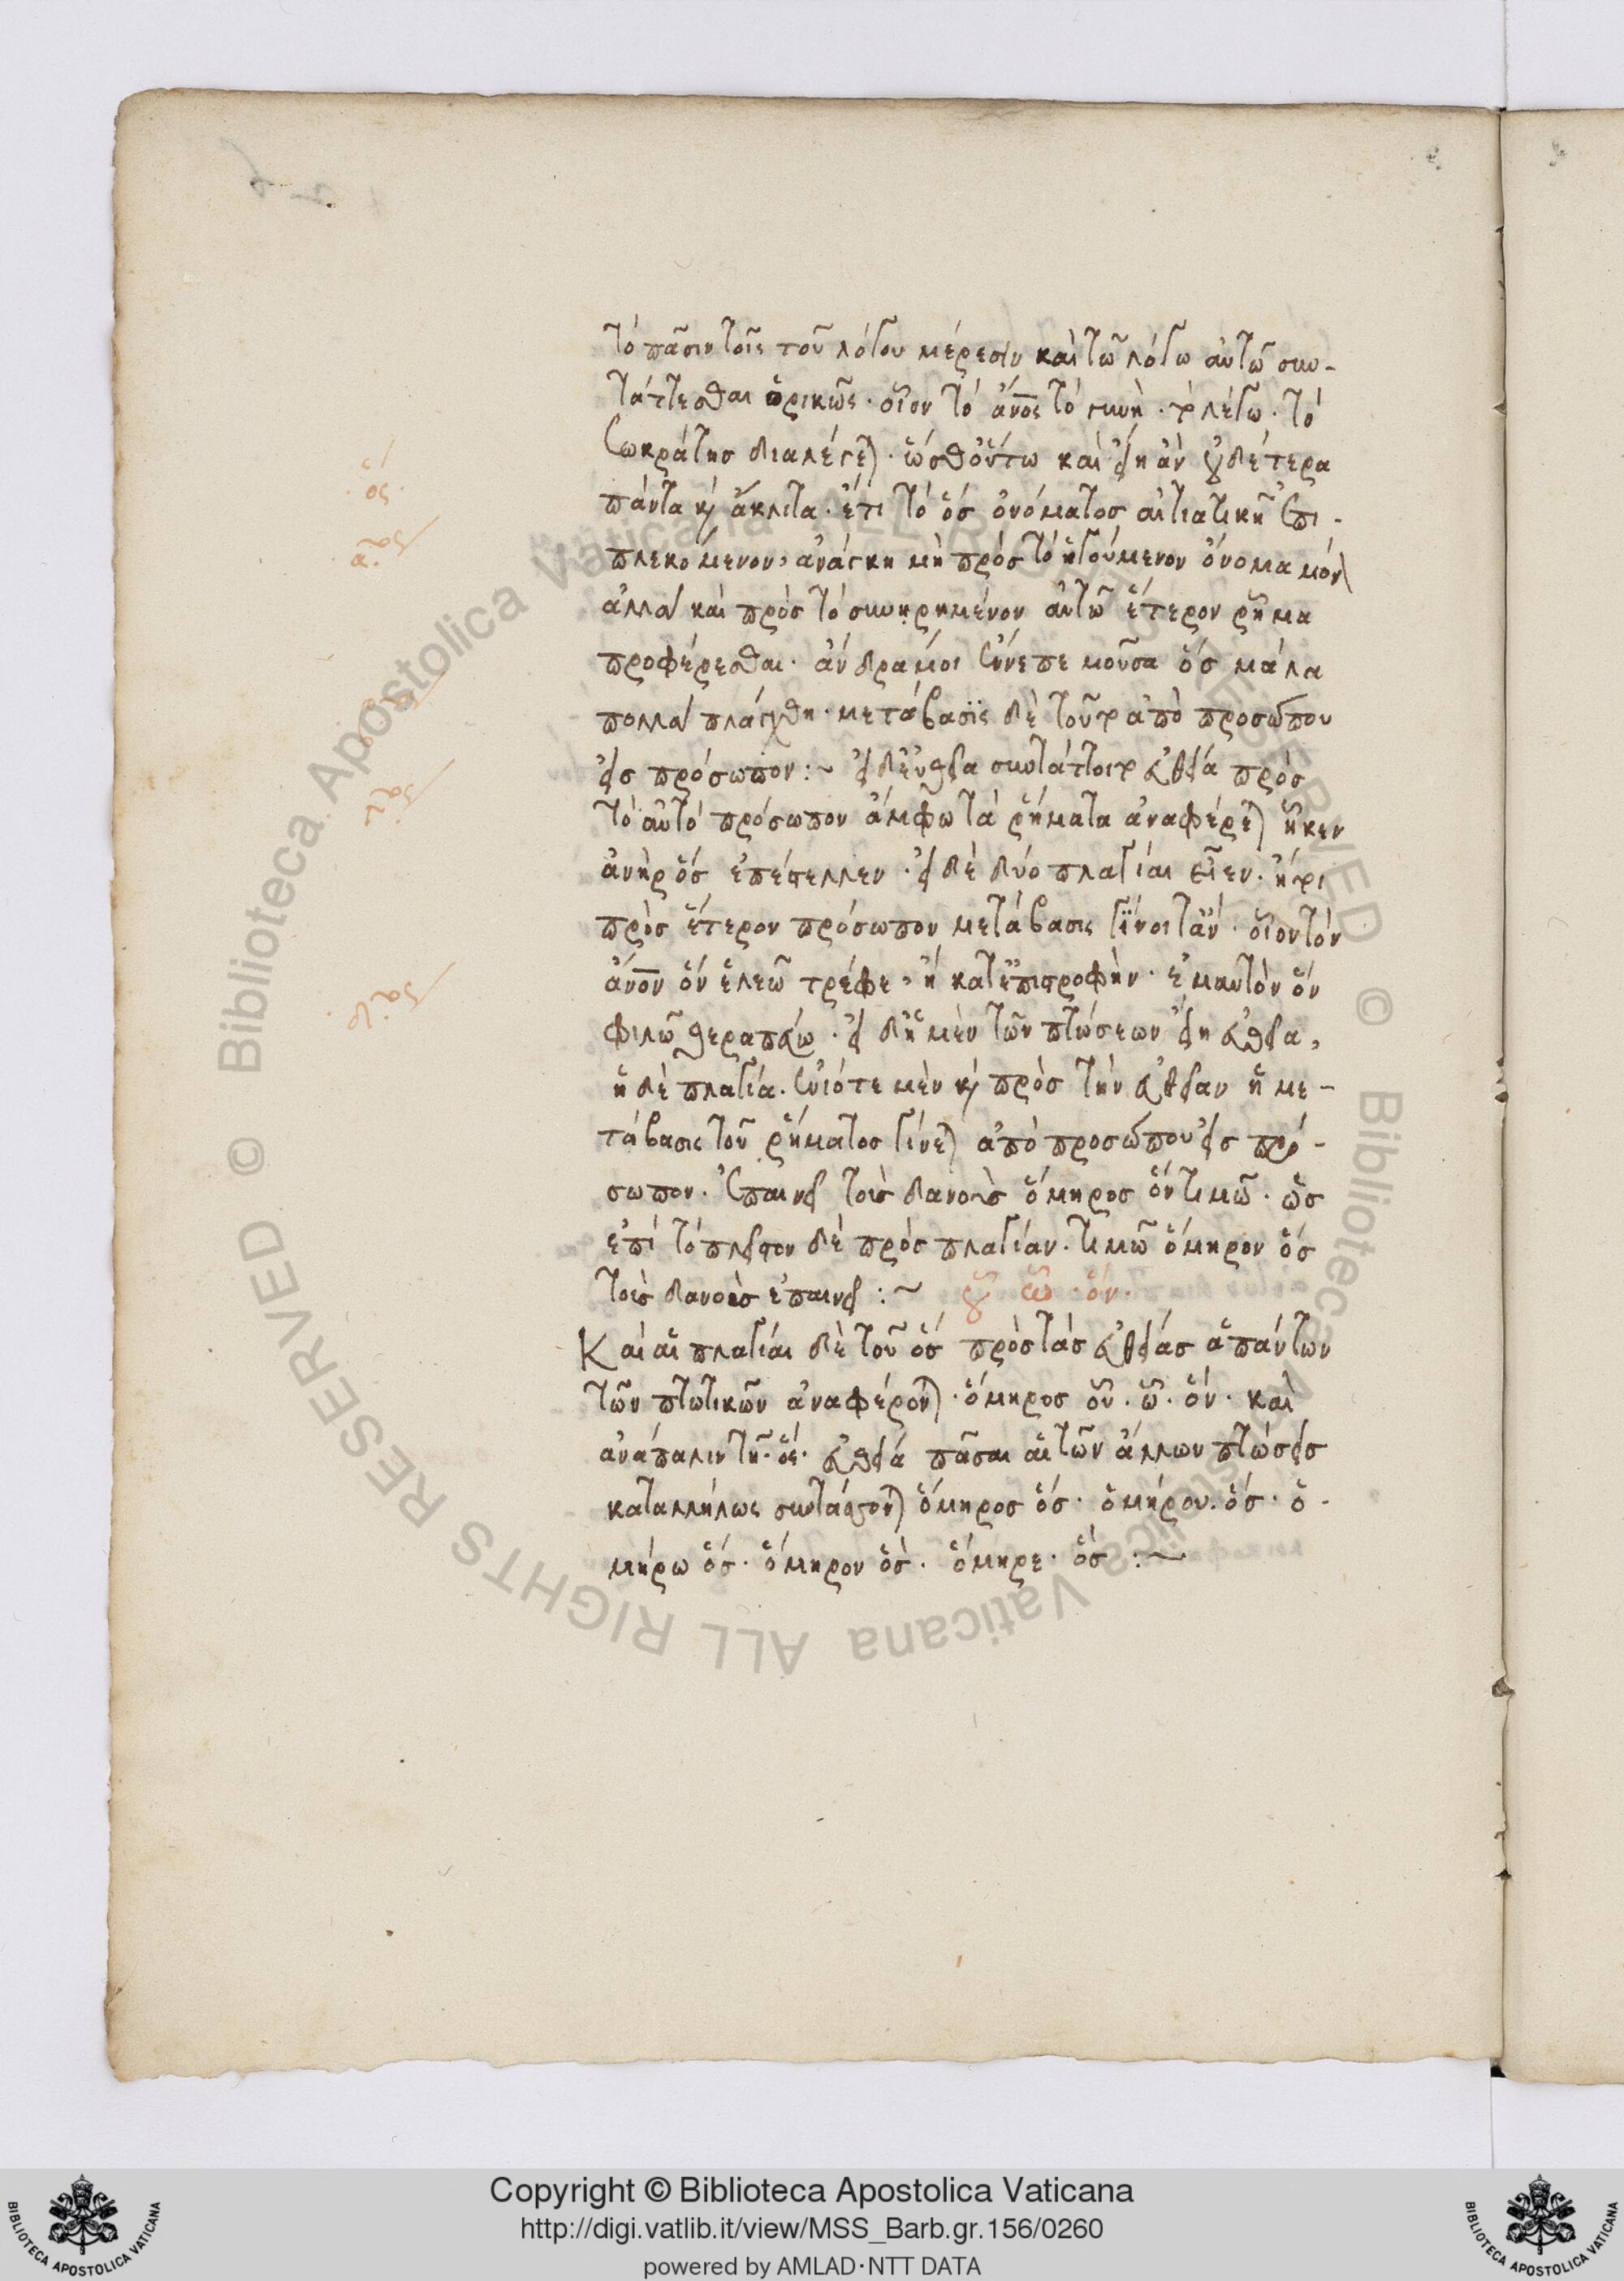 τὸ πᾶσιν τοῖς τοῦ λόγου μέρεσιν καὶ τῶ λόγω αὐτῶ συν-
τάττεσθαι ὁρικῶς· οἷον τὸ ἄνος τὸ γυνὴ· τὸ λέγω· τὸ
Σωκράτησ διαλέγε)· ὥσθ' οὕτω καὶ εἴη ἂν οὐδέτερα
πάντα κ) ἄκλιτα· ἔτι τὸ ὅσ ὀνόματοσ αἰτιατικῆ ἐπι-
πλεκόμενον, ἀνάγκη μὴ πρόσ τὸ ἡγούμενον ὄνομα μόν
ἀλλὰ καὶ πρὸσ τὸ συνηρημένον αὐτῶ ἕτερον ῥῆμα
προφέρεσθαι· ἄνδρα μοι ἔννεπε μοῦσα ὅσ μάλα
πολλὰ πλάγχθη· μετάβασϊς δὲ τοῦτο ἀπὸ προσώπου
εἰσ πρόσωπον :~ εἰ δὲ εὐθεῖα συντάττοιτο εὐθεῖα πρόσ
τὸ αὐτὸ πρόσωπον ἄμφω τὰ ῥήματα ἀναφέρε) ἧκεν
ἀνὴρ ὅσ ἐπέστελλεν· εἰ δὲ δύο πλαγίαι εἶεν· ἤτοι
πρὸσ ἕτερον πρόσωπον μετάβασις γϊνοιτ' ἄν· οἷον τὸν
ἄνον ὅν ἐλεῶ τρέφε, ἢ κατ' ἐπιστροφὴν· ἐμαυτὸν ὅν
φιλῶ θεραπεύω· εἰ δ' ἡ μὲν τῶν πτώσεων εἴη εὐθεῖα,
ἡ δὲ πλαγία. ἐνιότε μὲν κ) πρὸσ τὴν εὐθεῖαν ἡ με-
τάβασις τοῦ ῥήματοσ γίνε) ἀπὸ προσώπου εἰσ πρό-
σωπον. ἐπαινεῖ τοὺσ δαναοὺσ ὅμηροσ ὅν τιμῶ· ὡσ
ἐπὶ τὸ πλεῖστον δὲ πρὸσ πλαγίαν. τιμῶ ὅμηρον ὅσ
τοὺσ δαναοὺσ ἐπαινεῖ :~ οὗ ὧ ὅν.
Καὶ αἱ πλαγίαι δὲ τοῦ ὅσ πρὸσ τὰσ εὐθείασ ἁπάντων
τῶν πτωτικῶν ἀναφέρον)· ὅμηροσ οὗ· ὧ· ὅν· καὶ
ἀνάπαλιν τῆ· ὅσ· εὐθεία πᾶσαι αἱ τῶν ἄλλων πτώσεισ
καταλλήλως συντάσσον) ὅμηροσ ὅσ· ὁμήρου. ὅσ· ὁ-
μήρω ὅσ· ὅμηρον ὅσ· ὅμηρε· ὅσ :~
Copyright © Biblioteca Apostolica Vaticana
http://digi.vatlib.it/view/MSS_Barb.gr.156/0260
powered by AMLAD·NTT DATA